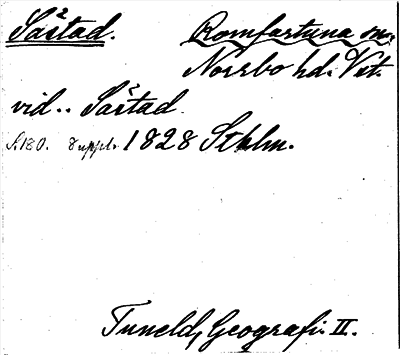 Saƶtad. Romfartuna sn.
Norrbo hd. Vst.
vid.. Saƶtad.
S. 180. 8 uppl. 1828 Sthlm.
Tuneld, Geografi. II.